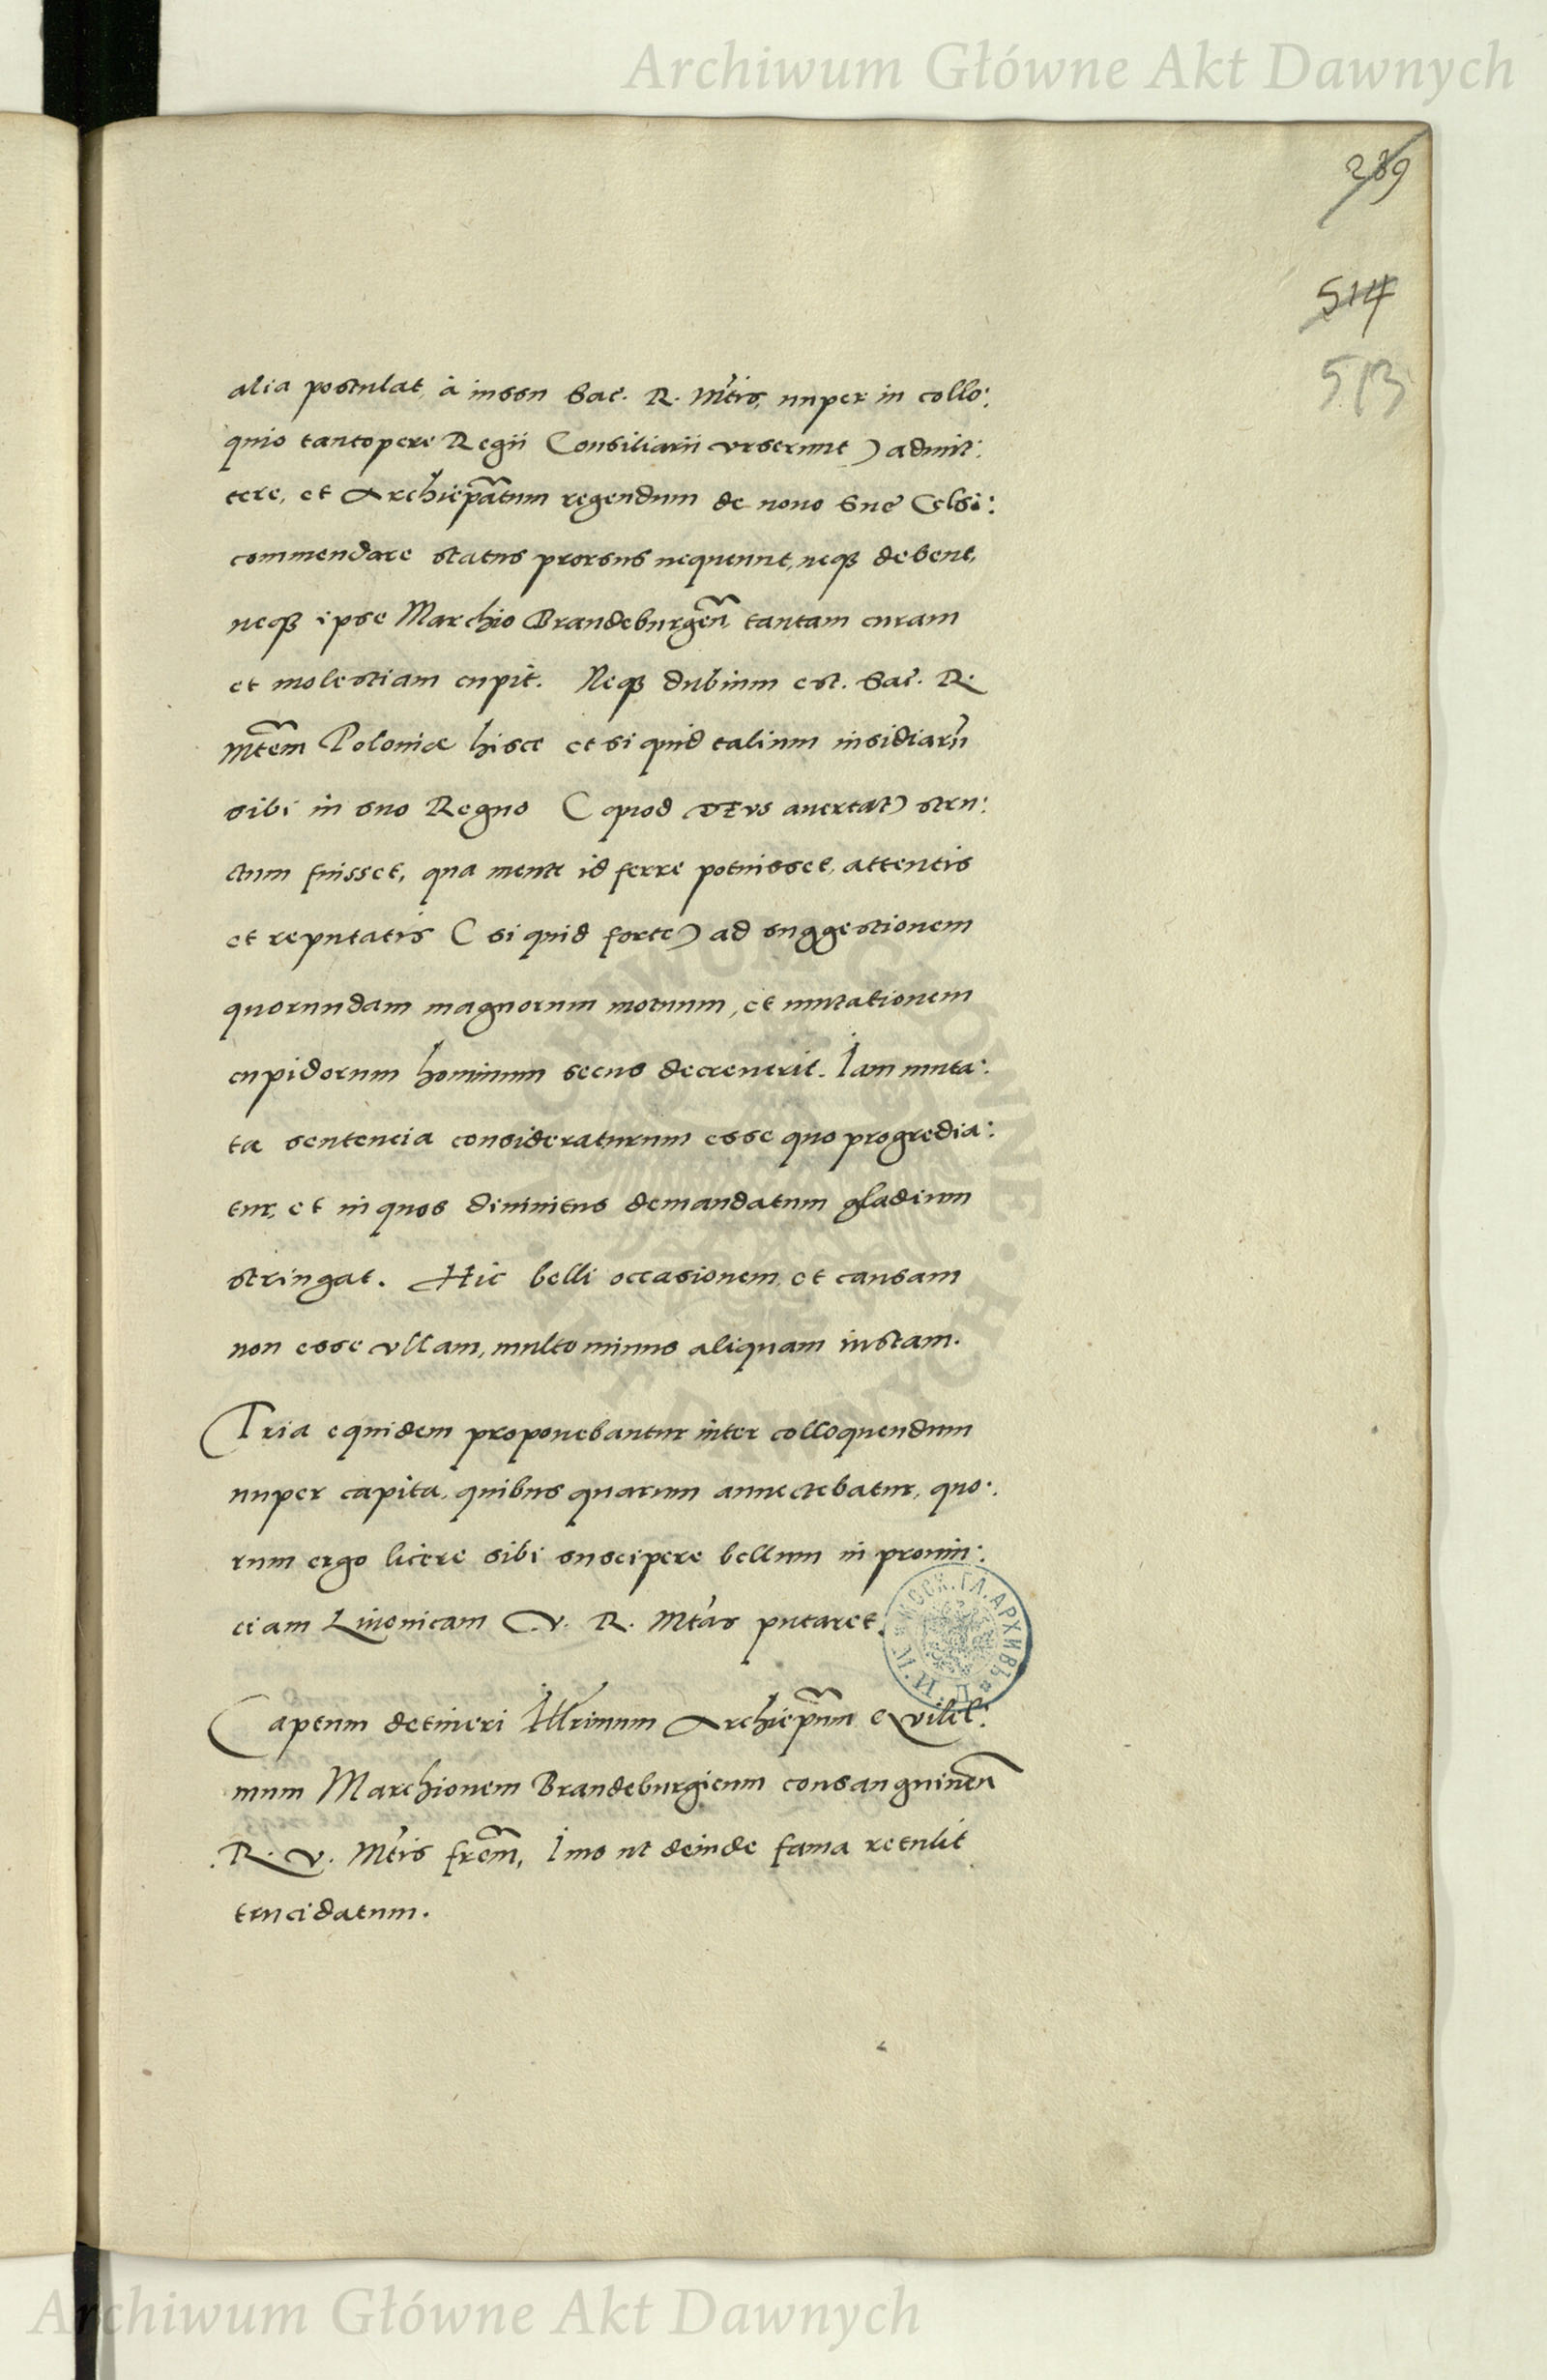 Archiwum Główne Akt Dawnych
289
514
513
alia postulat, à iussu Sac. R. Mtis, nuper in collo:
quio tantopere Regii Consiliarii vrserunt) admit:
tere, et Archiepatum regendum de nouo Sue Celsi:
commendare status prorsus nequeunt, neqꝫ debent,
neqꝫ ipse Marchio Brandeburgen tantam curam
et molestiam cupit. Neqꝫ dubium est. Sac. R.
Mtem Poloniæ hisce et si quid talium insidiarū
sibi in suo Regno (quod DEVS auertat) stru:
ctum fuisset, qua mente id ferre potuisset, attentis
et reputatis (si quid forte) ad suggestionem
quorundam magnorum motuum, et mutationem
cupidorum hominum secus decreuerit. Iam muta:
ta sententia consideraturum esse quo progredia:
tur, et in quos diuinitus demandatum gladium
stringat. Hic belli occasionem et causam
non esse vllam, multo minus aliquam iustam.
Tria equidem proponebantur inter colloquendum
nuper capita, quibus quartum annectebatur, quo:
rum ergo licere sibi suscipere bellum in prouin:
ciam Liuonicam V. R. Mtas putaret.
Captum detineri Illrimum Archiepum Wilel:
mum Marchionem Brandeburgicum consanguineū
R. V. Mtis frem, Imo ut deinde fama retulit
trucidatum.
ARCHIWUM GŁÓWNE AKT DAWNYCH
МОСК. ГЛ. АРХИВЪ
Archiwum Główne Akt Dawnych